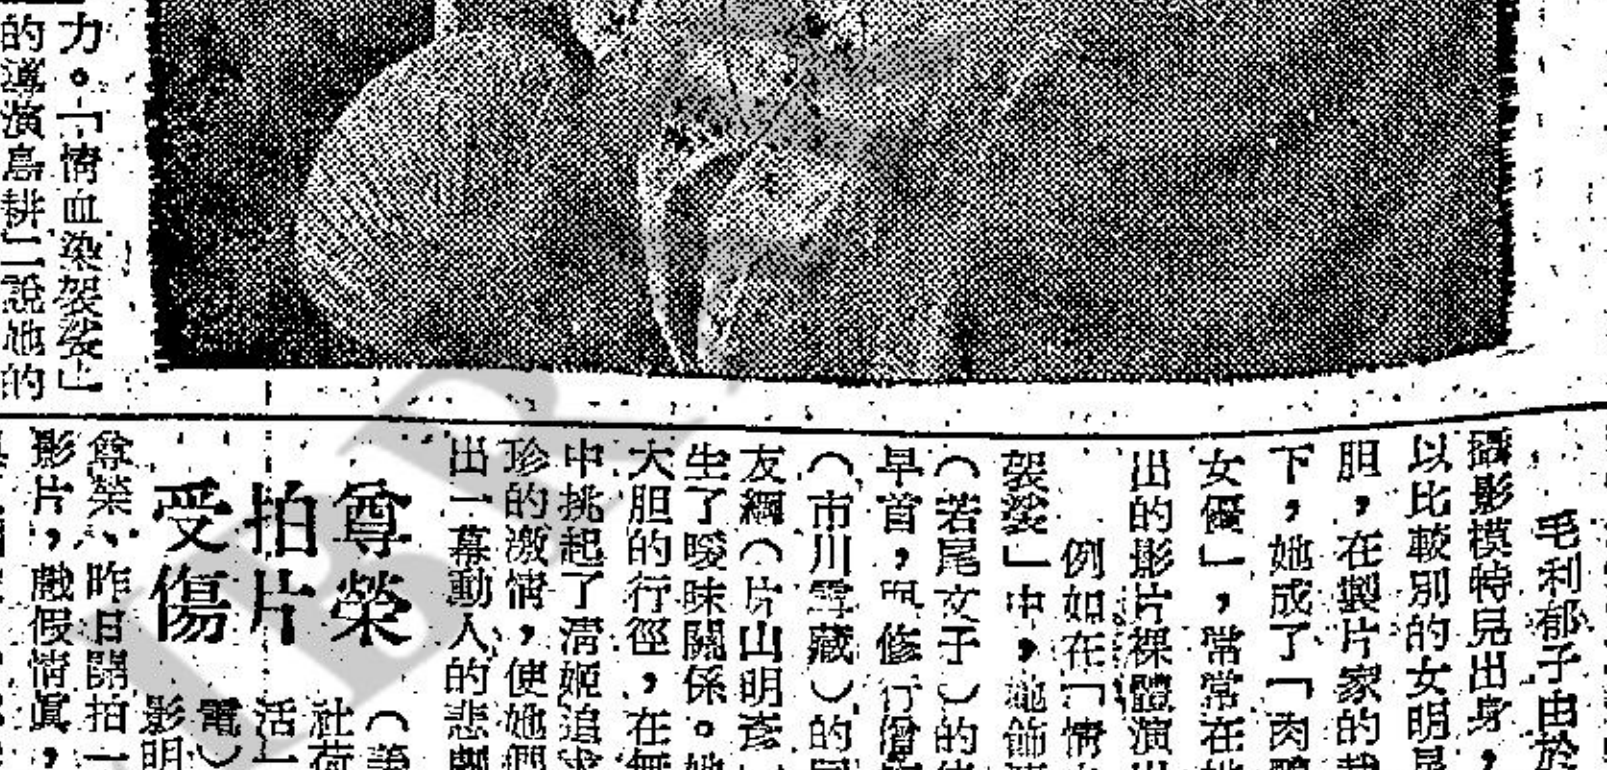 力。「情血染袈裟」
的導演島耕二說她的
毛利郁子由於
攝影模特兒出身，
以比較別的女明星
胆，在製片家的
下，她成了「肉
女優」，常常在
出的影片裸體演出
例如在「情
袈裟」中，她飾
（若尾文子）的
早首，與修行僧
（市川雷藏）的
友綱（片山明彥
生了曖昧關係。她
大胆的行徑，在無
中挑起了清姬追求
珍的激情，使她們
出一幕動人的悲劇
尊榮
拍片
受傷
社荷
活
電）
影明
尊榮、昨日開拍一
影片，戲假情眞，